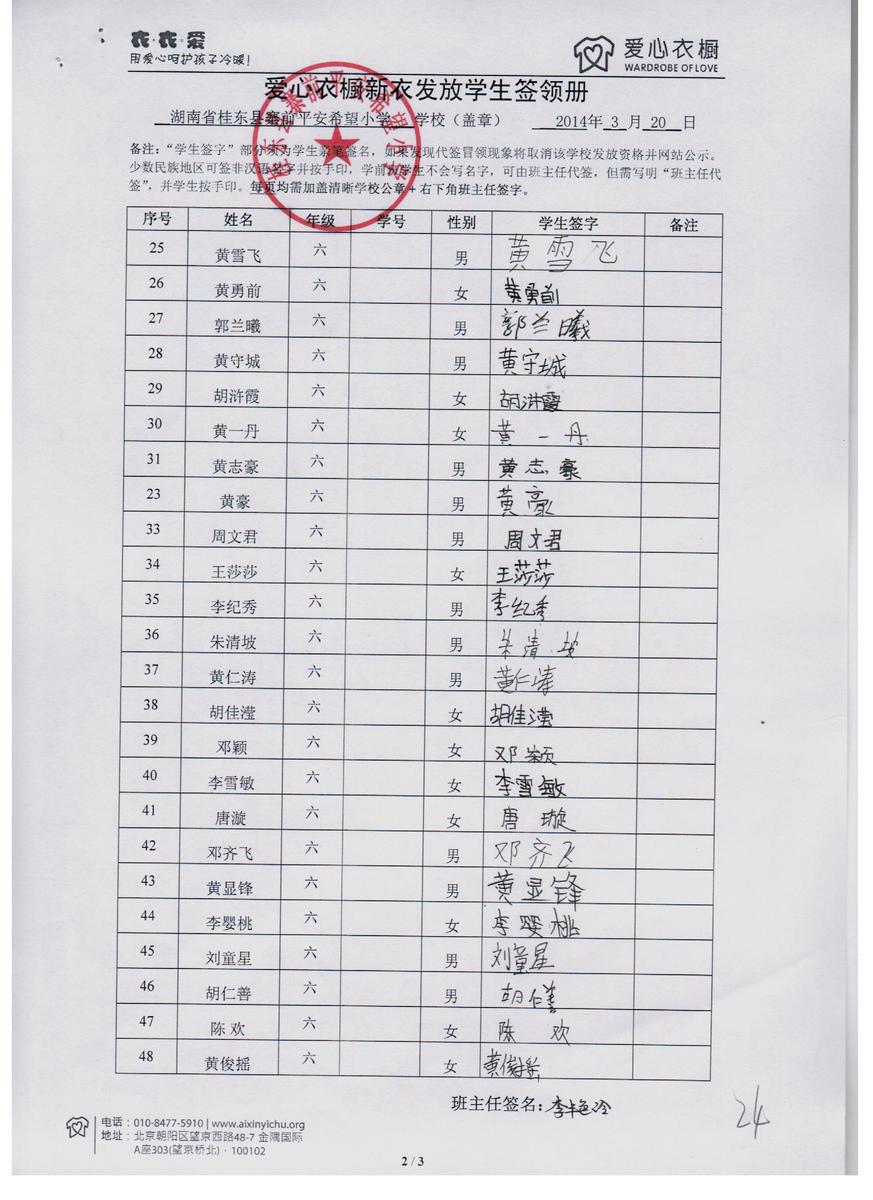 衣·衣·爱
用爱心呵护孩子冷暖!
爱心衣橱
WARDROBE OF LOVE
爱心衣橱新衣发放学生签领册
湖南省桂东县寨前平安希望小学 学校（盖章） 2014年 3 月 20 日
桂东县寨前平安希望小学
备注：“学生签字”部分须为学生亲笔签名，如果发现代签冒领现象将取消该学校发放资格并网站公示。
少数民族地区可签非汉语名字并按手印，学前班学生不会写名字，可由班主任代签，但需写明“班主任代
签”，并学生按手印。每页均需加盖清晰学校公章+右下角班主任签字。
序号 姓名 年级 学号 性别 学生签字 备注
25 黄雪飞 六 男 黄雪飞
26 黄勇前 六 女 黄勇前
27 郭兰曦 六 男 郭兰曦
28 黄守城 六 男 黄守城
29 胡浒霞 六 女 胡浒霞
30 黄一丹 六 女 黄一丹
31 黄志豪 六 男 黄志豪
23 黄豪 六 男 黄豪
33 周文君 六 男 周文君
34 王莎莎 六 女 王莎莎
35 李纪秀 六 男 李纪秀
36 朱清坡 六 男 朱清坡
37 黄仁涛 六 男 黄仁涛
38 胡佳滢 六 女 胡佳滢
39 邓颖 六 女 邓颖
40 李雪敏 六 女 李雪敏
41 唐漩 六 女 唐璇
42 邓齐飞 六 男 邓齐飞
43 黄显锋 六 男 黄显锋
44 李婴桃 六 女 李婴桃
45 刘童星 六 男 刘童星
46 胡仁善 六 男 胡仁善
47 陈 欢 六 女 陈 欢
48 黄俊摇 六 女 黄俊摇
班主任签名：李
24
电话：010-8477-5910 | www.aixinyichu.org
地址：北京朝阳区望京西路48-7 金隅国际
A座303(望京桥北)·100102
2 / 3